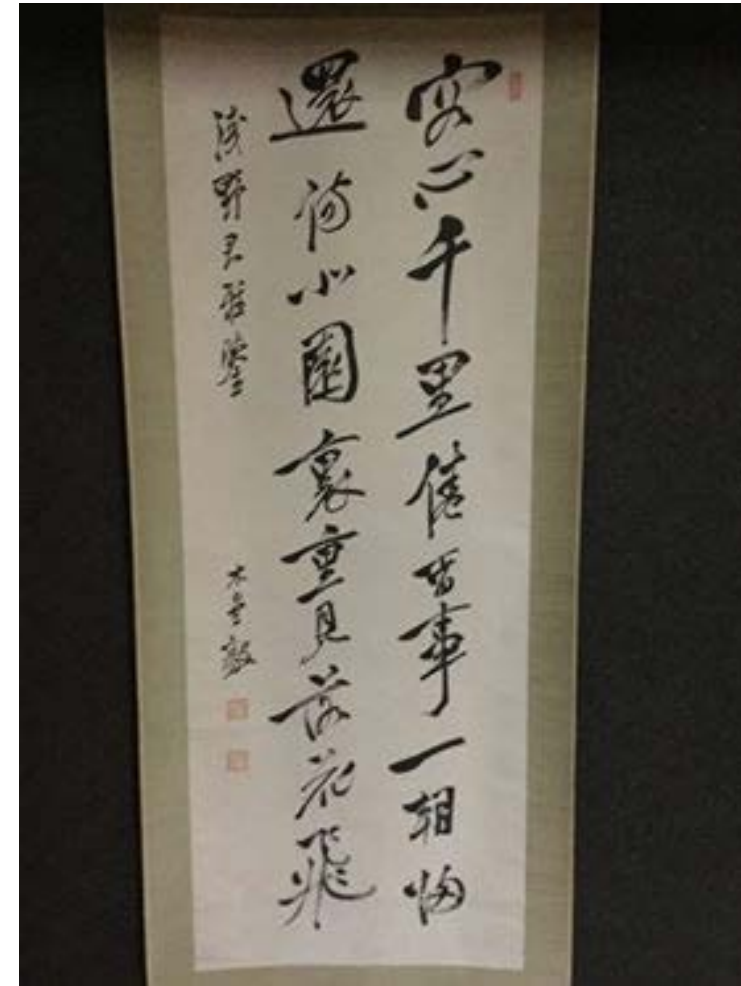 客心千里倦春事一朝歸
還傷北園裏重見落花飛
淺野君雅鑒
木堂毅